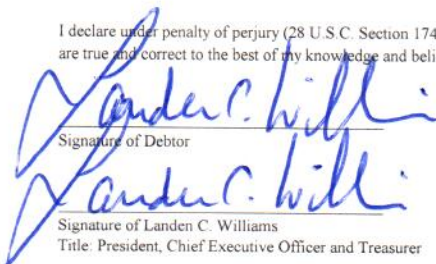 I declare under penalty of perjury (28 U.S.C. Section 174
are true and correct to the best of my knowledge and beli
Landen C. Willi
Signature of Debtor
Landen C. Willi
Signature of Landen C. Williams
Title: President, Chief Executive Officer and Treasurer